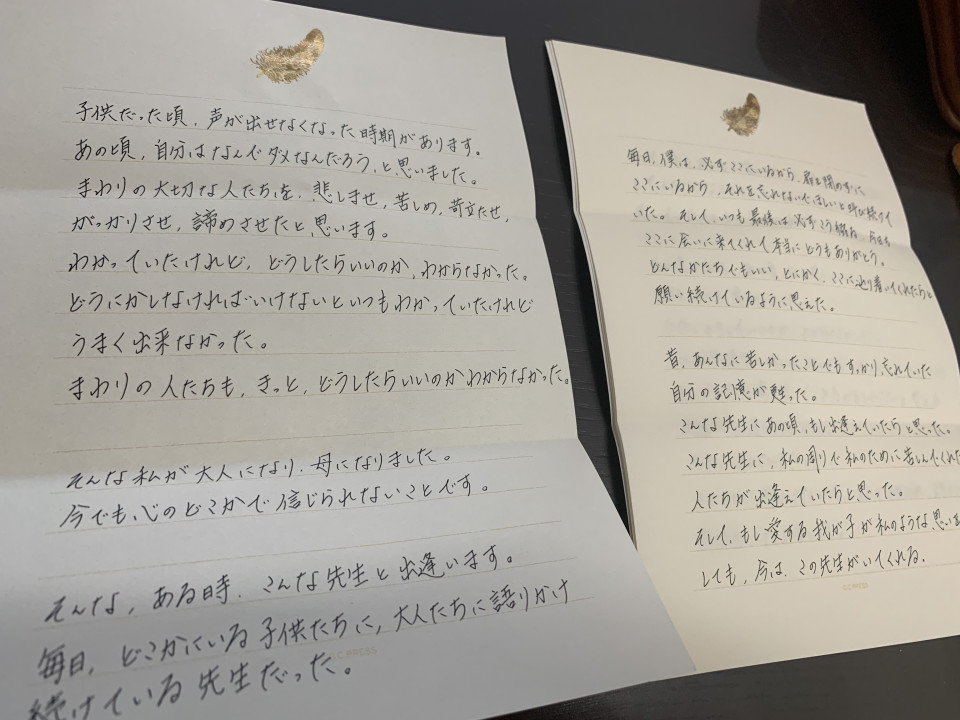 子供だった頃、声が出せなくなった時期があります。
あの頃、自分はなんでダメなんだろう、と思いました。
まわりの大切な人たちを、悲しませ、苦しめ、苛立たせ、
がっかりさせ、諦めさせたと思います。
わかっていたけれど、どうしたらいいのか、わからなかった。
どうにかしなければいけないといつもわかっていたけれど
うまく出来なかった。
まわりの人たちも、きっと、どうしたらいいのかわからなかった。
そんな私が大人になり、母になりました。
今でも、心のどこかで信じられないことです。
そんな、ある時、こんな先生と出逢います。
毎日、どこかにいる子供たちに、大人たちに語りかけ
続けている先生だった。
C PRESS
毎日、僕は、必ずここにいるから、扉を閉めずに
ここにいるから、それを忘れないでほしいと呼び続けて
いた。そして、いつも最後は必ずこう綴る、今日も
ここに会いに来てくれて本当にどうもありがとう。
どんなかたちでもいい、とにかく、ここに辿り着いてくれたらと
願い続けているように思えた。
昔、あんなに苦しかったことでもすっかり忘れていた
自分の記憶が甦った。
こんな先生にあの頃、もし出逢えていたらと思った。
こんな先生に、私の周りで私のために苦しんでくれた
人たちが出逢えていたらと思った。
そして、もし愛する我が子が私のような思いを
しても、今は、この先生がいてくれる。
G.C.PRESS